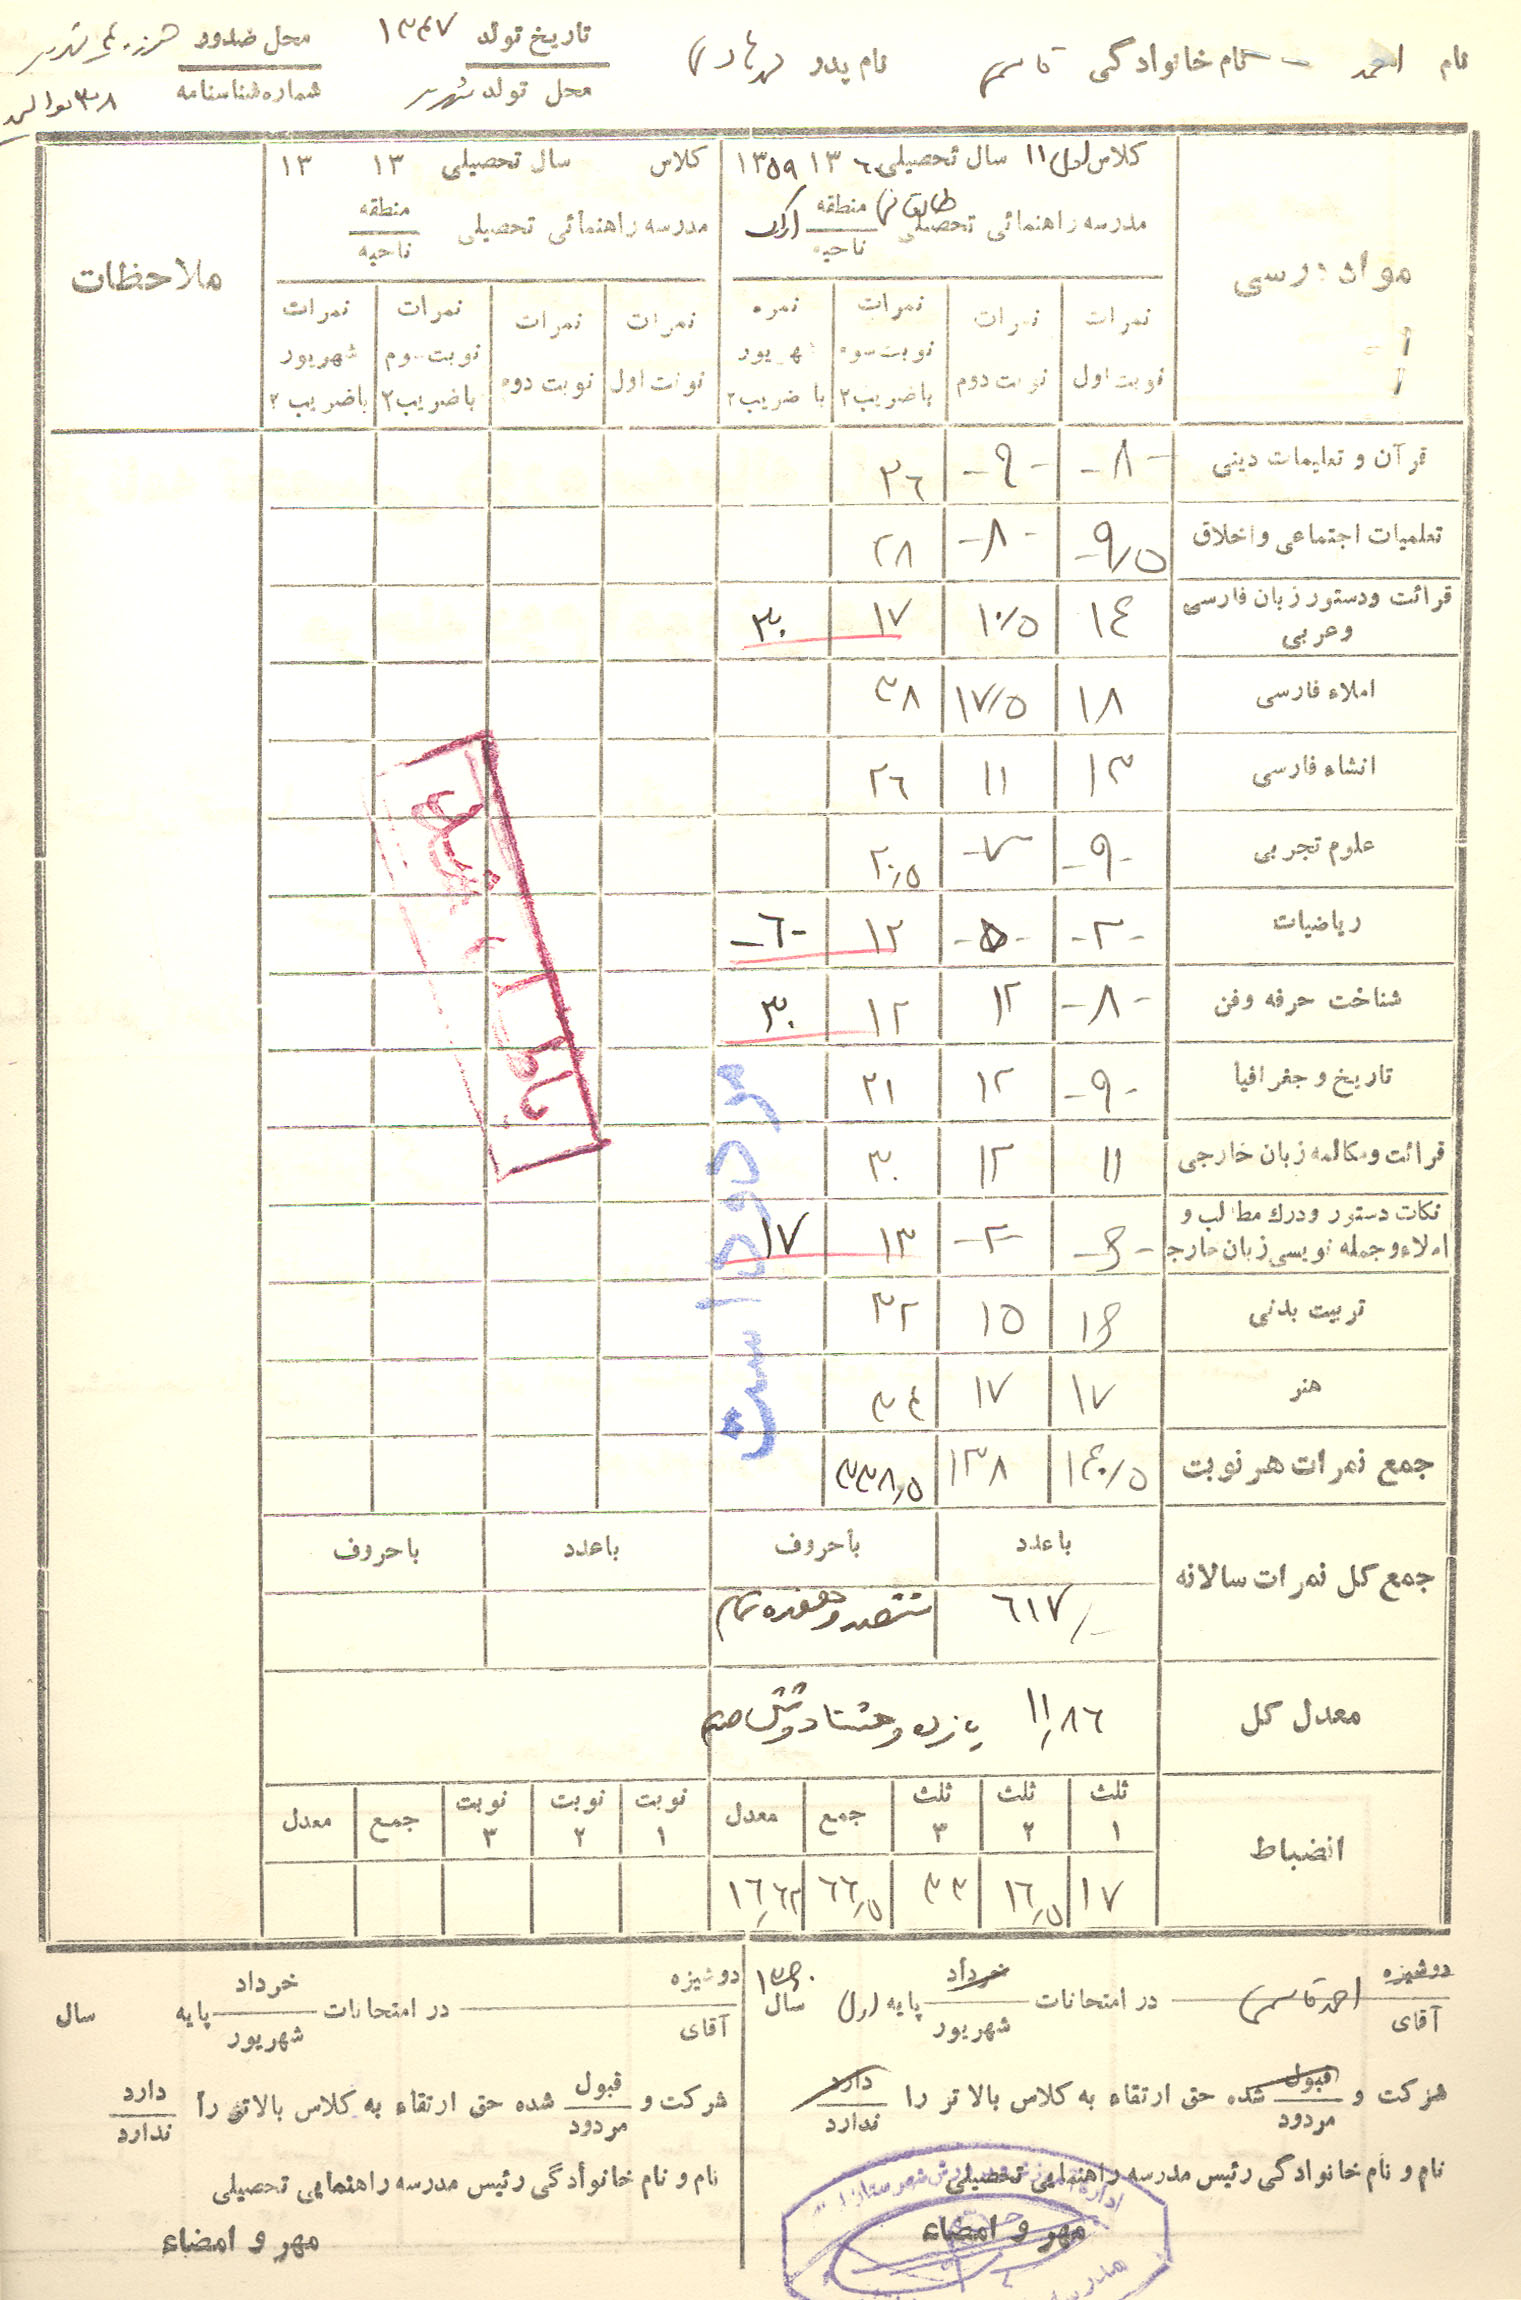 نام احمد نام خانوادگی قاسمی نام پدر تاریخ تولد ۱۳۴۷ محل صدور
محل تولد شماره شناسنامه ۳۰۸
مواد درسی
کلاس اول ۱۱ سال تحصیلی ۱۳۶۰ ۱۳۵۹
مدرسه راهنمائی تحصیلی طالقانی منطقه ناحیه اراک
کلاس سال تحصیلی ۱۳ ۱۳
مدرسه راهنمائی تحصیلی منطقه ناحیه
ملاحظات
نمرات نوبت اول
نمرات نوبت دوم
نمرات نوبت سوم با ضریب ۲
نمره شهریور با ضریب ۲
نمرات نوبت اول
نمرات نوبت دوم
نمرات نوبت سوم با ضریب ۲
نمرات شهریور با ضریب ۲
قرآن و تعلیمات دینی -۸- -۹- ۲۶
تعلمیات اجتماعی و اخلاق -۹/۵ -۸- ۲۸
قرائت و دستور زبان فارسی و عربی ۱۴ ۱۰/۵ ۱۷ ۳۰
املاء فارسی ۱۸ ۱۷/۵ ۳۸
انشاء فارسی ۱۳ ۱۱ ۲۶
علوم تجربی -۹- -۷- ۲۰/۵
ریاضیات -۲- -۵- ۱۲ -۶-
شناخت حرفه و فن -۸- ۱۲ ۱۲ ۳۰
تاریخ و جغرافیا -۹- ۱۲ ۲۱
قرائت و مکالمه زبان خارجی ۱۱ ۱۲ ۳۰
نکات دستور و درک مطالب و املاء و جمله نویسی زبان خارجی -۴- -۲- ۱۳ ۱۷
تربیت بدنی ۱۴ ۱۵ ۳۲
هنر ۱۷ ۱۷ ۳۴
جمع نمرات هر نوبت ۱۴۰/۵ ۱۳۸ ۳۳۸/۵
مردود است
باطل شد
جمع کل نمرات سالانه
باعدد باحروف باعدد باحروف
۶۱۷/- ششصد و هفده تمام
معدل کل ۱۱/۸۶ یازده و هشتاد و شش صدم
انضباط
ثلث ۱ ثلث ۲ ثلث ۳ جمع معدل نوبت ۱ نوبت ۲ نوبت ۳ جمع معدل
۱۷ ۱۶/۵ ۳۳ ۶۶/۵ ۱۶/۶۲
دوشیزه آقای احمد قاسمی در امتحانات خرداد شهریور پایه اول سال ۱۳۶۰
شرکت و قبول مردود شده حق ارتقاء به کلاس بالاتر را دارد ندارد
نام و نام خانوادگی رئیس مدرسه راهنمایی تحصیلی
مهر و امضاء
دوشیزه آقای در امتحانات خرداد شهریور پایه سال
شرکت و قبول مردود شده حق ارتقاء به کلاس بالاتر را دارد ندارد
نام و نام خانوادگی رئیس مدرسه راهنمایی تحصیلی
مهر و امضاء